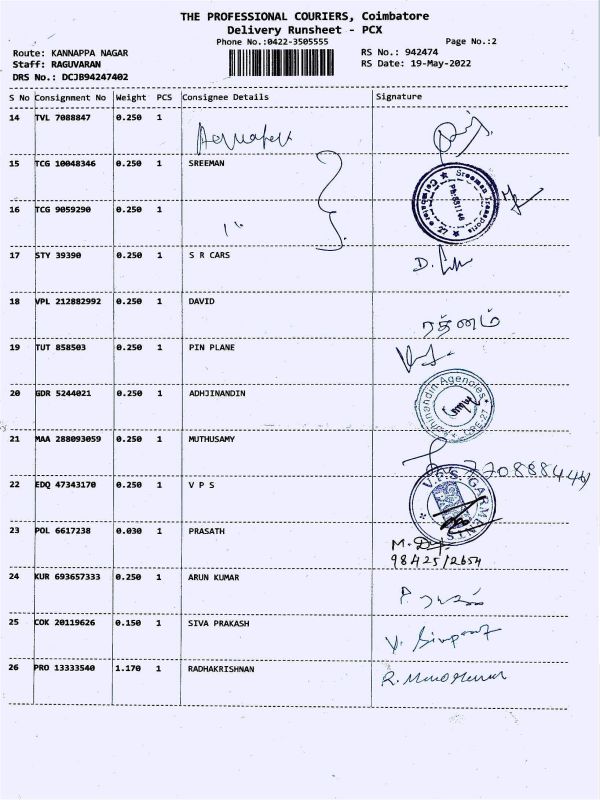 THE PROFESSIONAL COURIERS, Coimbatore
Delivery Runsheet - PCX
Phone No.:0422-3505555 Page No.:2
Route: KANNAPPA NAGAR RS No.: 942474
Staff: RAGUVARAN RS Date: 19-May-2022
DRS No.: DCJB94247402
S No Consignment No Weight PCS Consignee Details Signature
14 TVL 7088847 0.250 1
15 TCG 10048346 0.250 1 SREEMAN
Sreeman Transports
Coimbatore
16 TCG 9059290 0.250 1
17 STY 39390 0.250 1 S R CARS
18 VPL 212882992 0.250 1 DAVID
ரத்னம்
19 TUT 858503 0.250 1 PIN PLANE
20 GDR 5244021 0.250 1 ADHJINANDIN
Agencies
21 MAA 288093059 0.250 1 MUTHUSAMY
22 EDQ 47343170 0.250 1 V P S
V.P.S. GARMENTS
23 POL 6617238 0.030 1 PRASATH
24 KUR 693657333 0.250 1 ARUN KUMAR
25 COK 20119626 0.150 1 SIVA PRAKASH
26 PRO 13333540 1.170 1 RADHAKRISHNAN